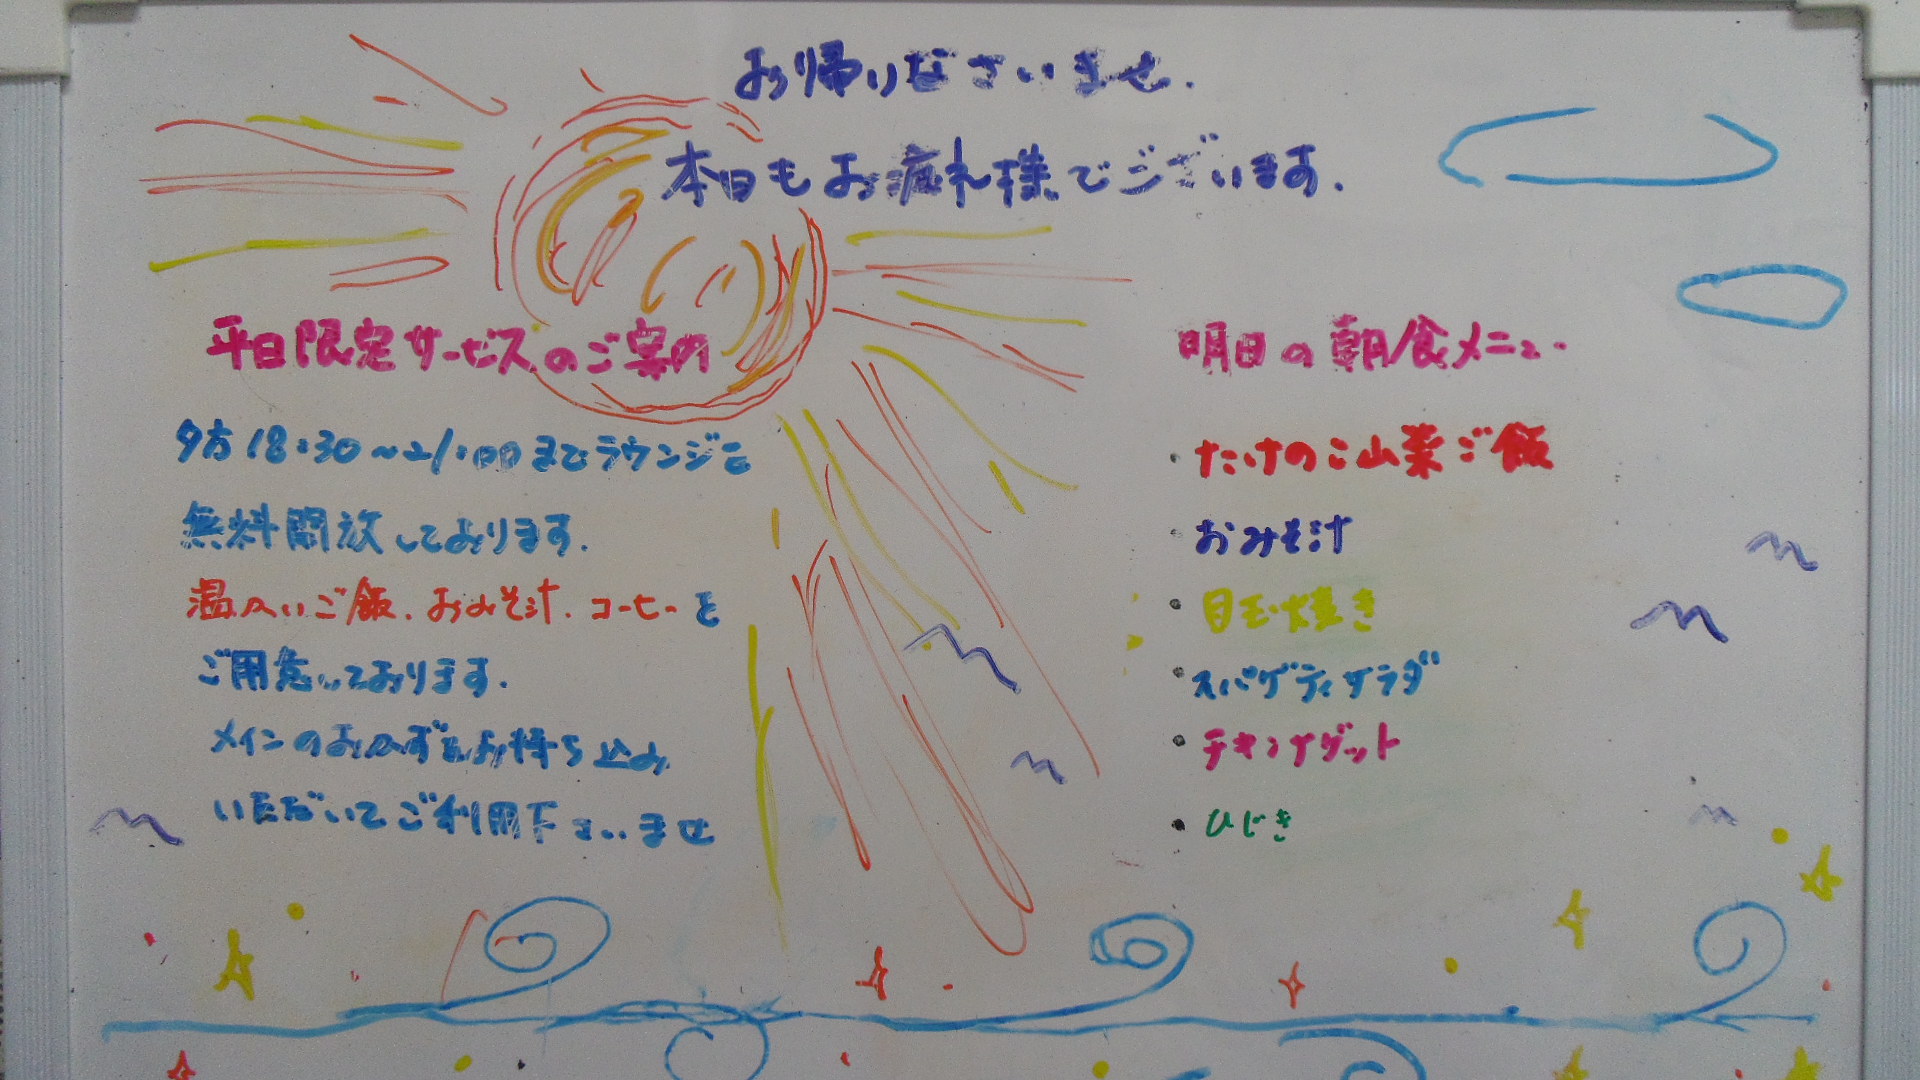 お帰りなさいませ.
本日もお疲れ様でございます.
平日限定サービスのご案内
夕方18:30~21:00までラウンジを
無料開放しております.
温かいご飯.おみそ汁.コーヒーを
ご用意しております.
メインのおかずをお持ち込み
いただいてご利用下さいませ
明日の朝食メニュー
・たけのこ山菜ご飯
・おみそ汁
・目玉焼き
・スパゲティサラダ
・チキンナゲット
・ひじき